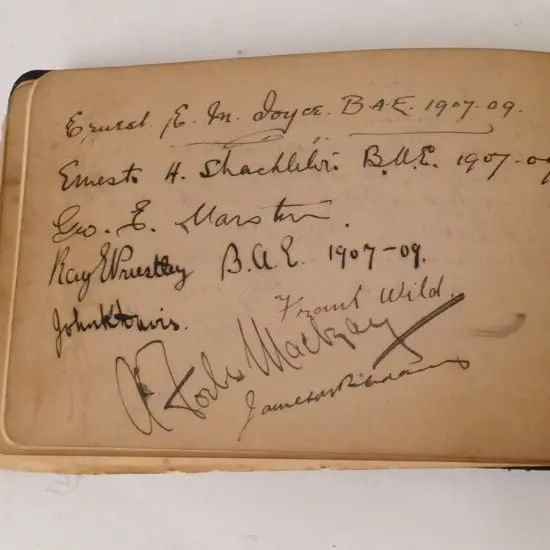 Ernest. E. M. Joyce. B.A.E. 1907-09.
Ernest H. Shackleton. B.A.E. 1907-09
Geo. E. Marston.
Raymond E Priestley B.A.E. 1907-09.
John K Davis.
Frank Wild.
A Forbes Mackay
Jameson